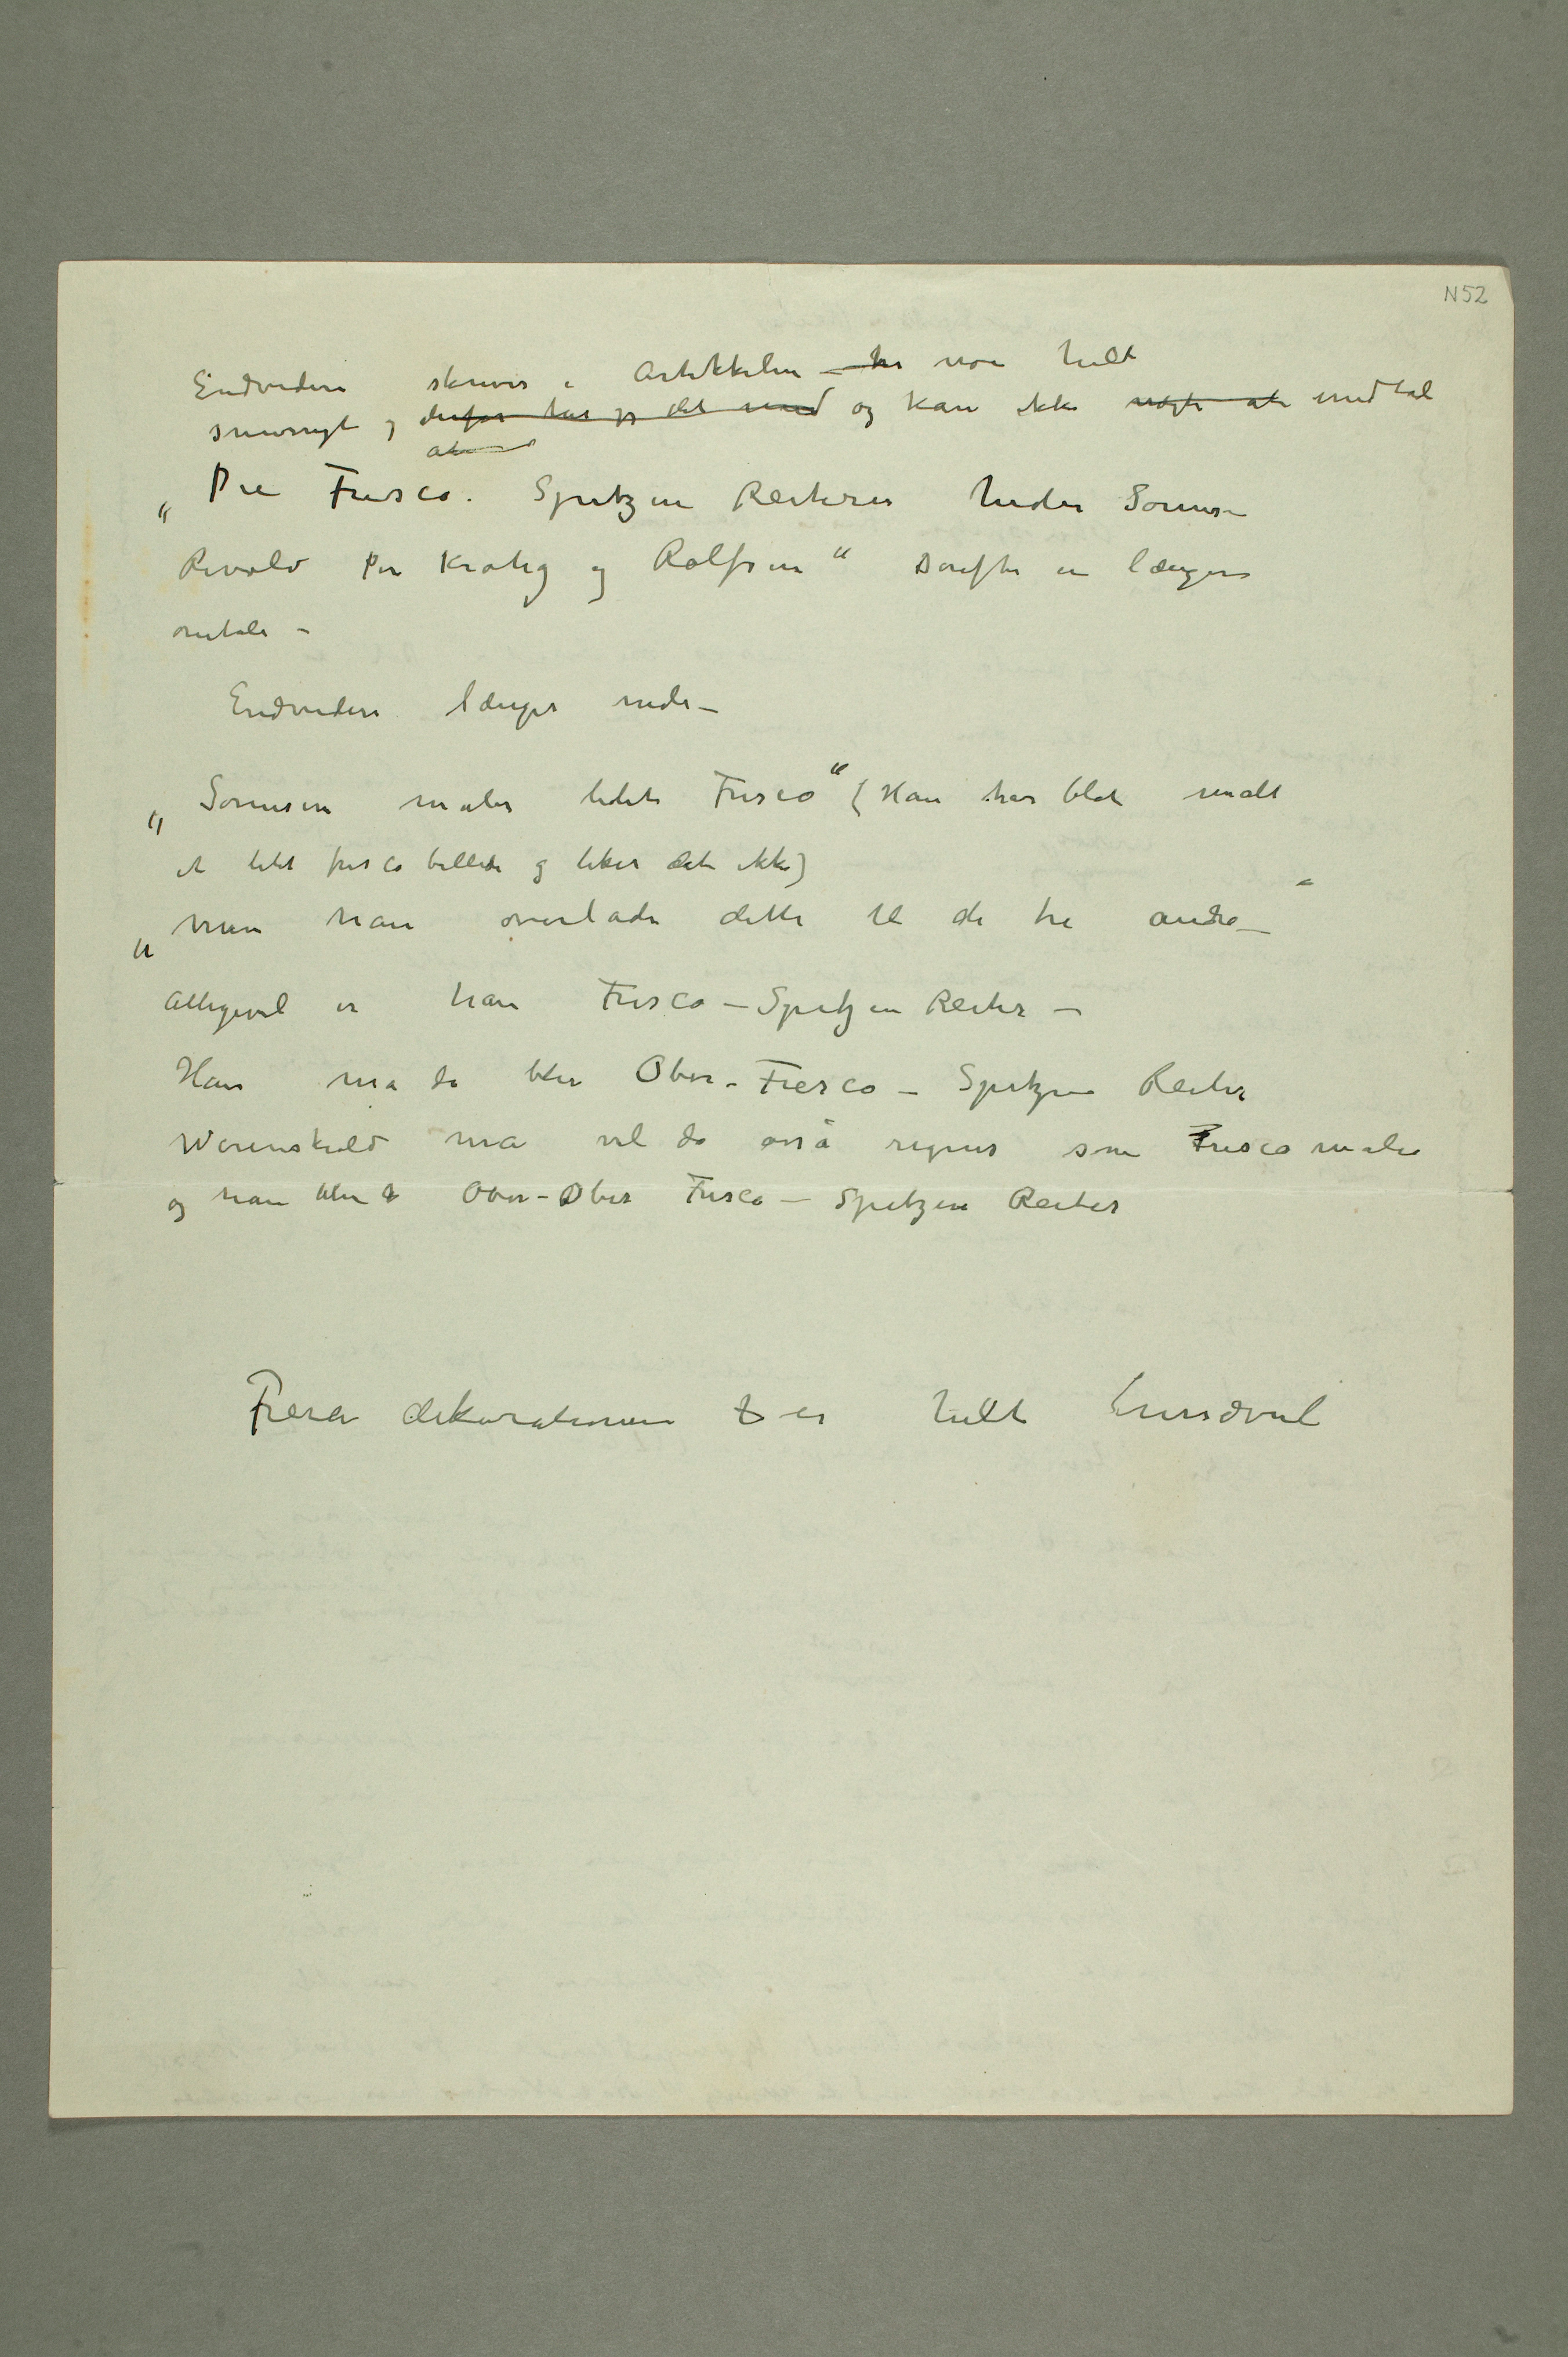 N52
Endvidere skrives i Artikkelen – her noe helt
snurrigt og derfor har jeg det med og kan ikke nægte at medtal
at
„Die Fresco. Spitzen Reiterer heder Sørensen
Revold Per Krohg og Rolfsen“ Derefter en længere
omtale –
Endvidere længer nede –
„Sørensen maler lidet Fresco“ (Han har blot malt
et litet fresco billede og liker det ikke)
„men han overlader dette til de tre andre –“
Alligevel er han Fresco – Spitzen Reiter –
Han må da blir Ober-Fresco – Spitzen Reiter
Werenskiold må vel da også regnes som Fresco maler
og han blir Ober-Ober Fresco – Spitzen Reiter
Freia dekorationen er helt